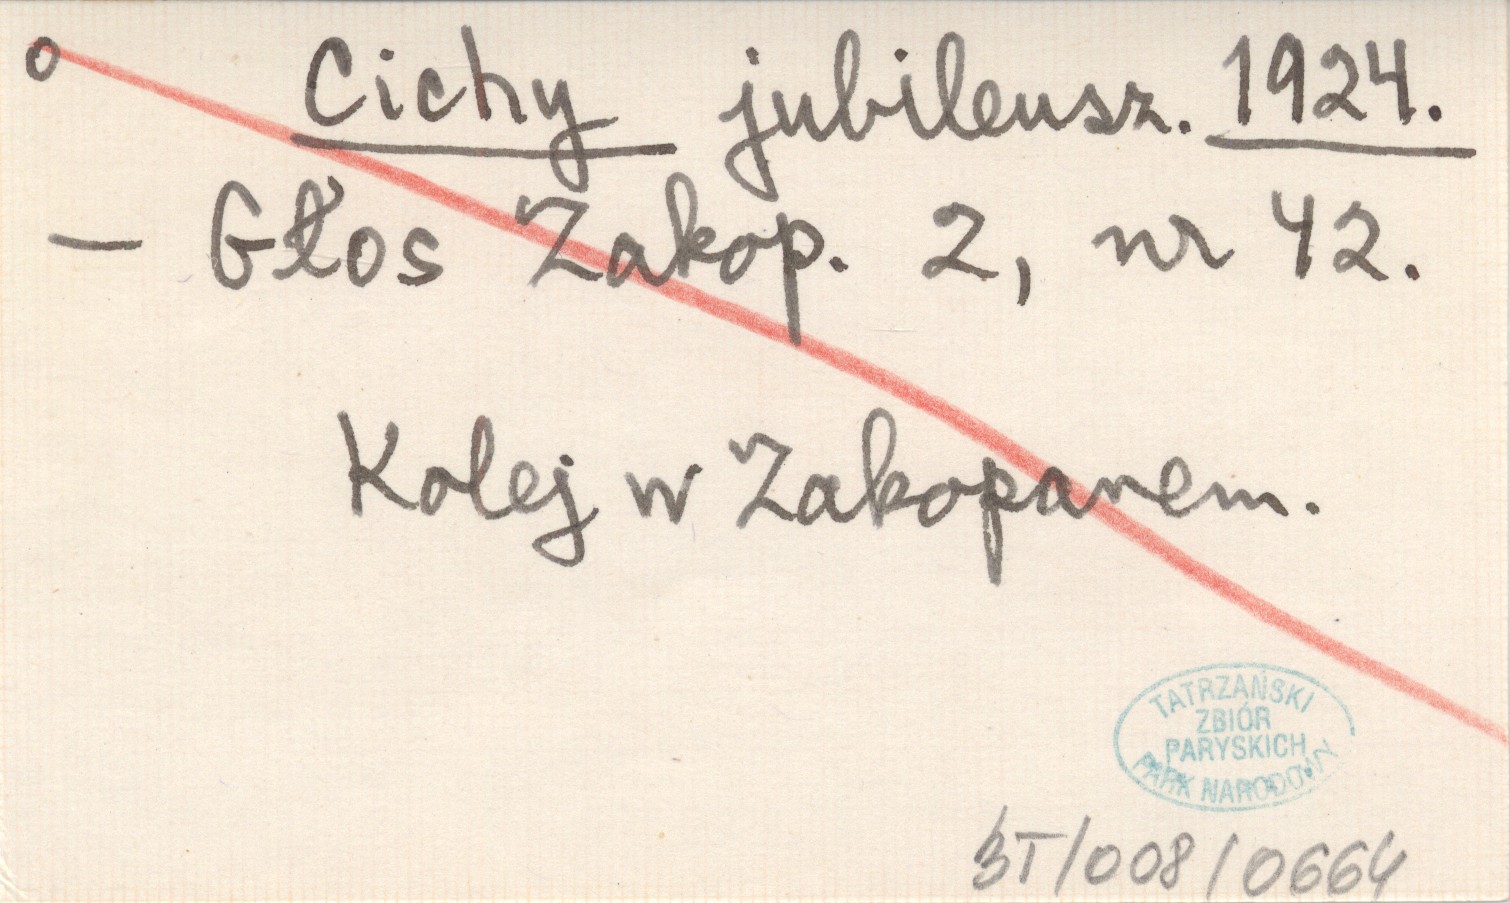 o Cichy jubileusz. 1924.
— Głos Zakop. 2, nr 42.
Kolej w Zakopanem.
TATRZAŃSKI
ZBIÓR
PARYSKICH
PARK NARODOWY
BT/008/0664